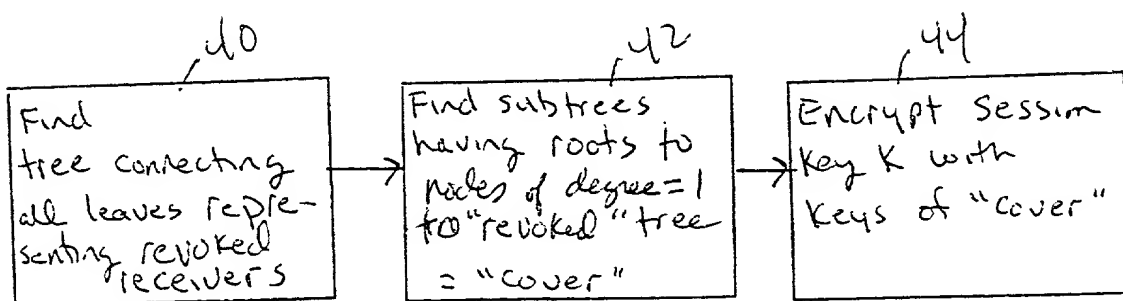 40
Find
tree connecting
all leaves repre-
senting revoked
receivers
42
Find subtrees
having roots to
nodes of degree=1
to "revoked" tree
= "cover"
44
Encrypt Session
Key K with
Keys of "Cover"